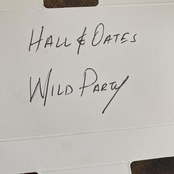 HALL & OATES
WILD PARTY